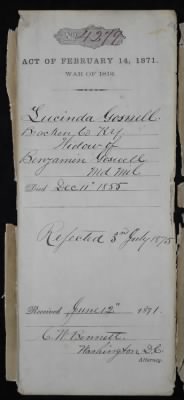 No. 4279
ACT OF FEBRUARY 14, 1871.
WAR OF 1812.
Lucinda Gosnell
Bracken Co Ky
Widow of
Benjamin Gosnell
Md Mil
Died Dec 11" 1855
Rejected 3rd July 1875
Received June 12" 1871.
C. W. Bennett
Washington D.C.
Attorney.